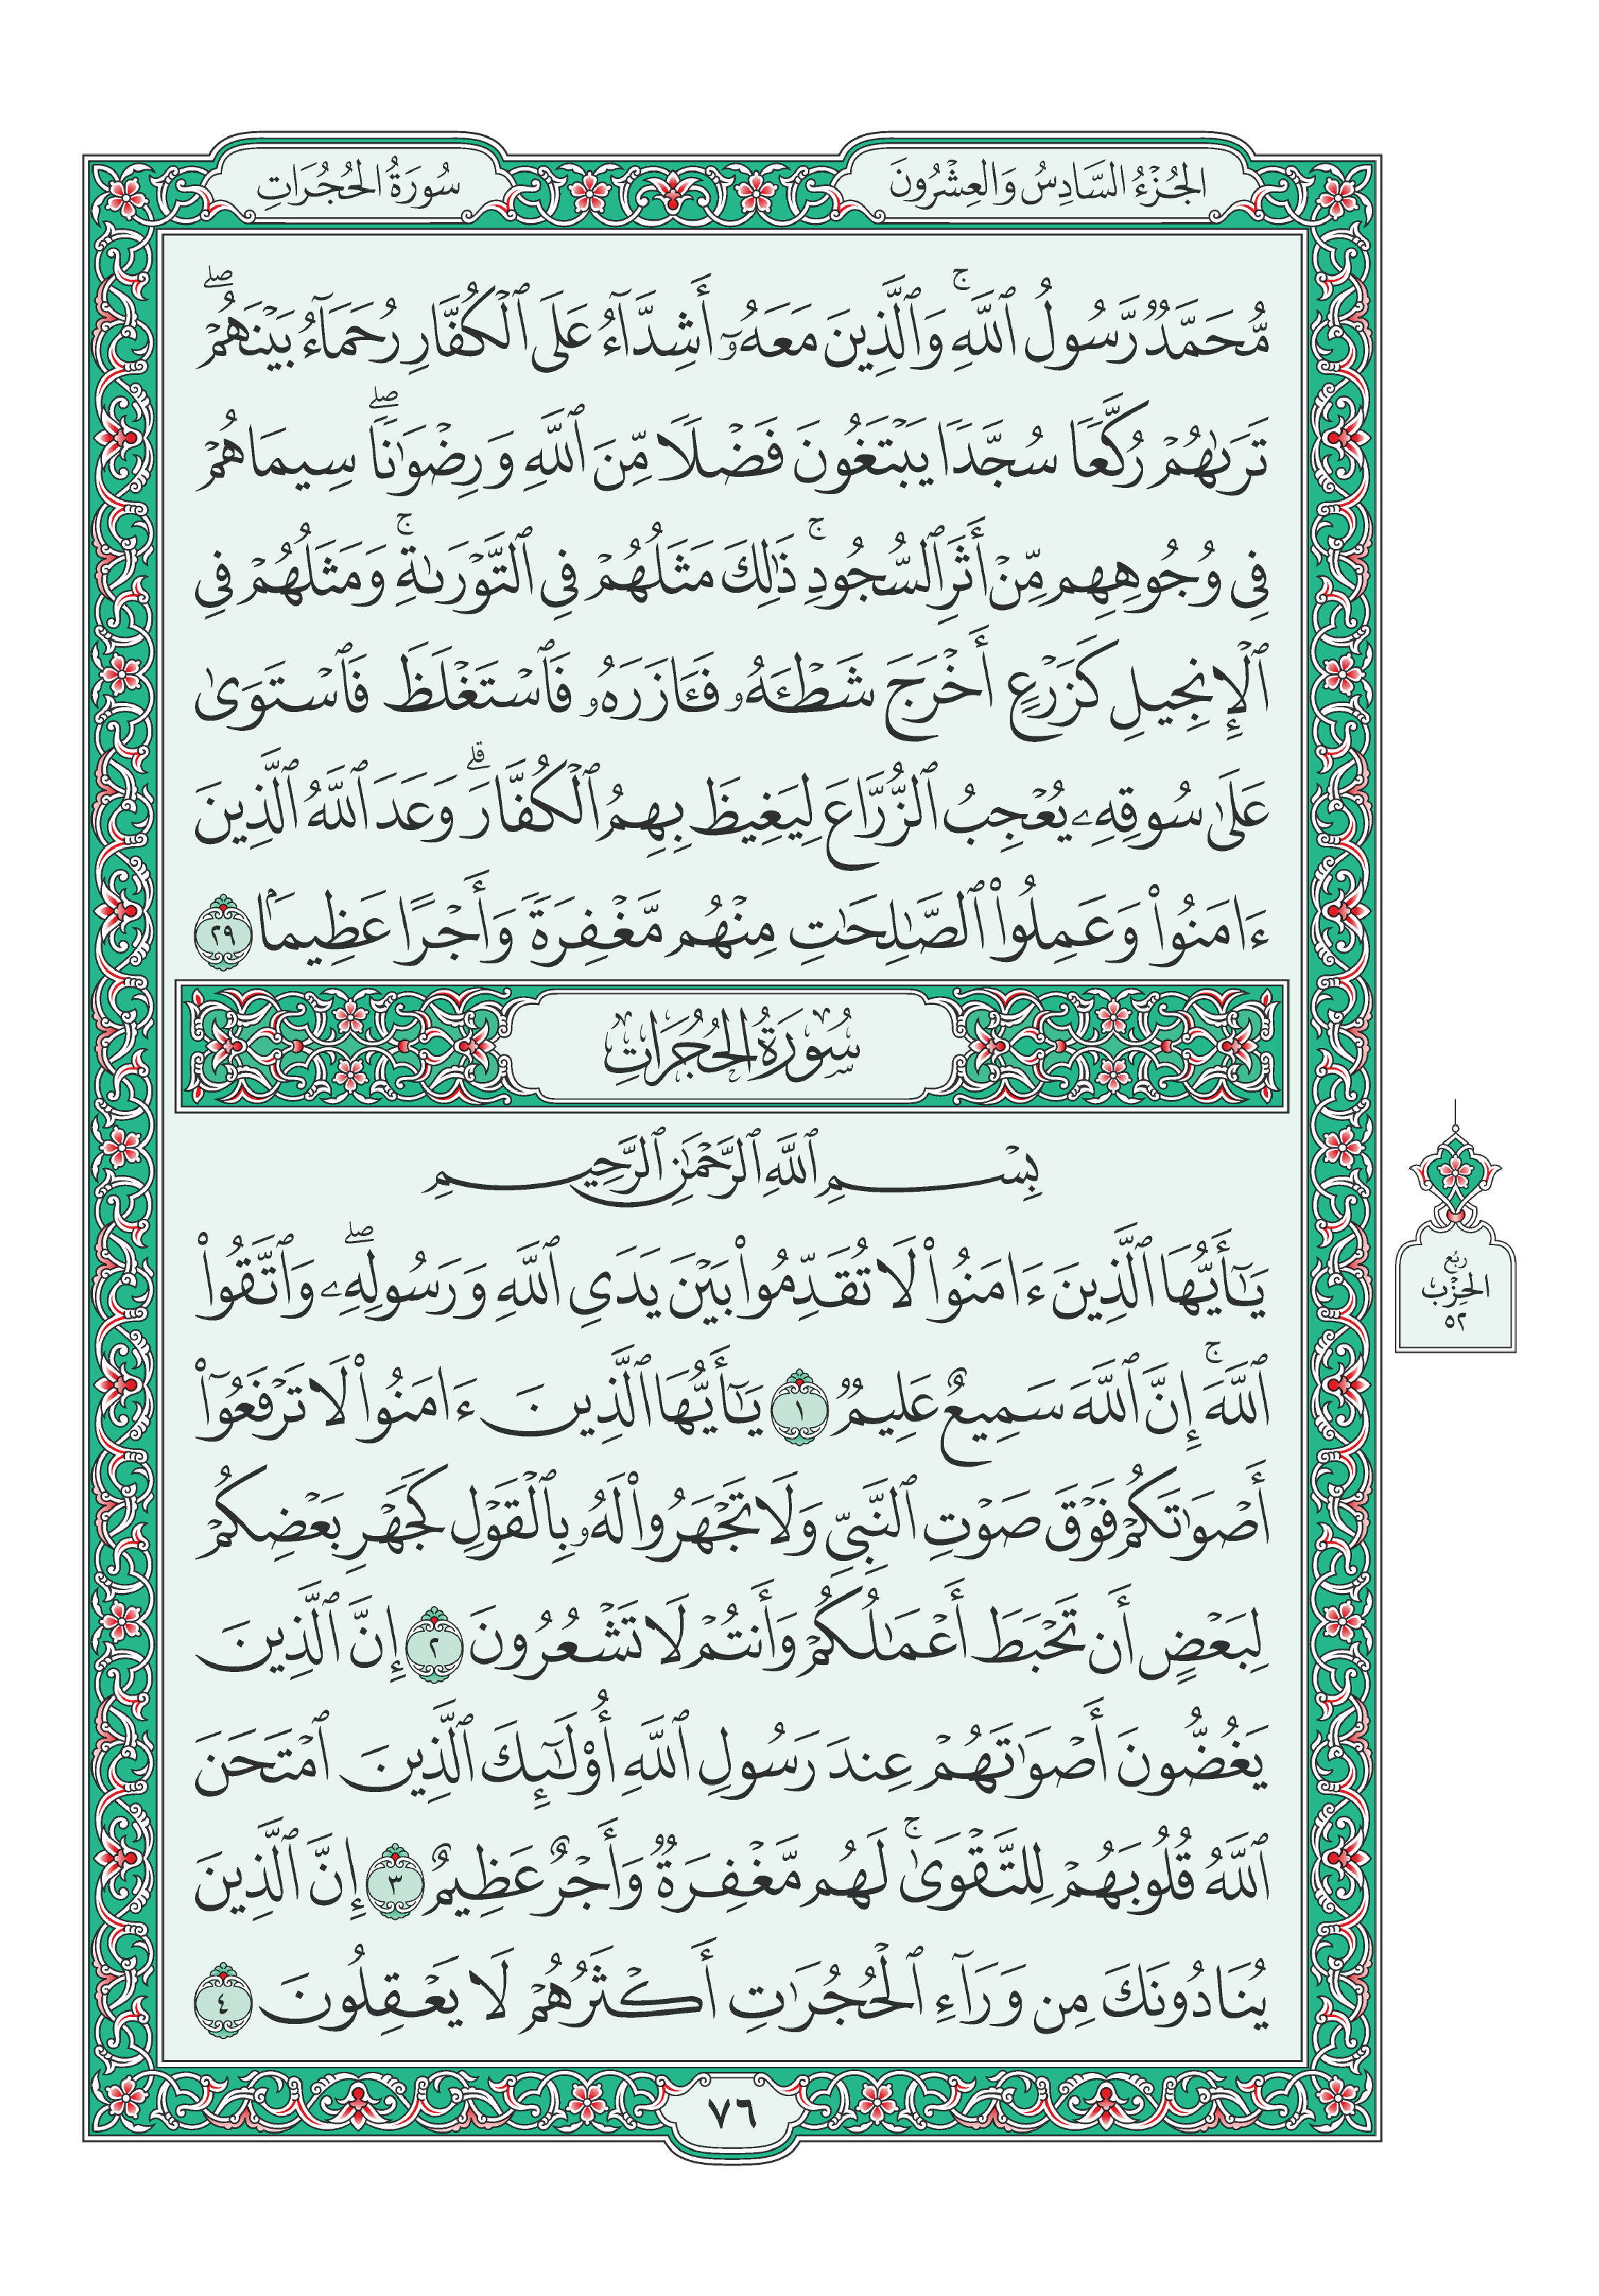 الجُزْءُ السَّادِسُ وَالعِشْرُونَ
سُورَةُ الحُجُرَاتِ
مُّحَمَّدٌ رَّسُولُ ٱللَّهِۚ وَٱلَّذِينَ مَعَهُۥٓ أَشِدَّآءُ عَلَى ٱلۡكُفَّارِ رُحَمَآءُ بَيۡنَهُمۡۖ
تَرَىٰهُمۡ رُكَّعٗا سُجَّدٗا يَبۡتَغُونَ فَضۡلٗا مِّنَ ٱللَّهِ وَرِضۡوَٰنٗاۖ سِيمَاهُمۡ
فِي وُجُوهِهِم مِّنۡ أَثَرِ ٱلسُّجُودِۚ ذَٰلِكَ مَثَلُهُمۡ فِي ٱلتَّوۡرَىٰةِۚ وَمَثَلُهُمۡ فِي
ٱلۡإِنجِيلِ كَزَرۡعٍ أَخۡرَجَ شَطۡـَٔهُۥ فَـَٔازَرَهُۥ فَٱسۡتَغۡلَظَ فَٱسۡتَوَىٰ
عَلَىٰ سُوقِهِۦ يُعۡجِبُ ٱلزُّرَّاعَ لِيَغِيظَ بِهِمُ ٱلۡكُفَّارَۗ وَعَدَ ٱللَّهُ ٱلَّذِينَ
ءَامَنُواْ وَعَمِلُواْ ٱلصَّٰلِحَٰتِ مِنۡهُم مَّغۡفِرَةٗ وَأَجۡرًا عَظِيمَۢا ٢٩
سُورَةُ الحُجُرَاتِ
بِسۡمِ ٱللَّهِ ٱلرَّحۡمَٰنِ ٱلرَّحِيمِ
يَٰٓأَيُّهَا ٱلَّذِينَ ءَامَنُواْ لَا تُقَدِّمُواْ بَيۡنَ يَدَيِ ٱللَّهِ وَرَسُولِهِۦۖ وَٱتَّقُواْ
ٱللَّهَۚ إِنَّ ٱللَّهَ سَمِيعٌ عَلِيمٞ ١ يَٰٓأَيُّهَا ٱلَّذِينَ ءَامَنُواْ لَا تَرۡفَعُوٓاْ
أَصۡوَٰتَكُمۡ فَوۡقَ صَوۡتِ ٱلنَّبِيِّ وَلَا تَجۡهَرُواْ لَهُۥ بِٱلۡقَوۡلِ كَجَهۡرِ بَعۡضِكُمۡ
لِبَعۡضٍ أَن تَحۡبَطَ أَعۡمَٰلُكُمۡ وَأَنتُمۡ لَا تَشۡعُرُونَ ٢ إِنَّ ٱلَّذِينَ
يَغُضُّونَ أَصۡوَٰتَهُمۡ عِندَ رَسُولِ ٱللَّهِ أُوْلَٰٓئِكَ ٱلَّذِينَ ٱمۡتَحَنَ
ٱللَّهُ قُلُوبَهُمۡ لِلتَّقۡوَىٰۚ لَهُم مَّغۡفِرَةٞ وَأَجۡرٌ عَظِيمٌ ٣ إِنَّ ٱلَّذِينَ
يُنَادُونَكَ مِن وَرَآءِ ٱلۡحُجُرَٰتِ أَكۡثَرُهُمۡ لَا يَعۡقِلُونَ ٤
رُبُع
الحِزْب
٥٢
٧٦